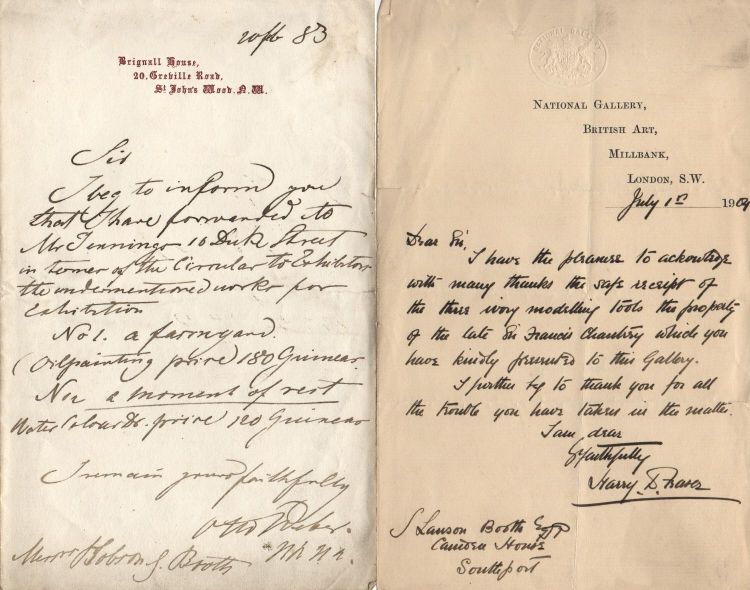 83
Brignall House,
20, Greville Road,
St John's Wood. N.W.
Sir
I beg to inform you
that I have forwarded to
Mr Jennings 16 Duke Street
in terms of the Circular to Exhibitors
the undermentioned works for
Exhibition
No 1. a farmyard.
(Oilpainting price 180 Guineas
No 2 a moment of rest
Water Colour Dr. price 120 Guineas
I remain yours faithfully
Otto Weber.
Messrs Hobson & Booth
NATIONAL GALLERY,
BRITISH ART,
MILLBANK,
LONDON, S.W.
July 1st 1904
Dear Sir,
I have the pleasure to acknowledge
with many thanks the safe receipt of
the three ivory modelling tools the property
of the late Sir Francis Chantrey which you
have kindly presented to this Gallery.
I further beg to thank you for all
the trouble you have taken in the matter.
I am, dear
Yr faithfully
Harry D. Fraser
S Lawson Booth Esqr
Camden House
Southport